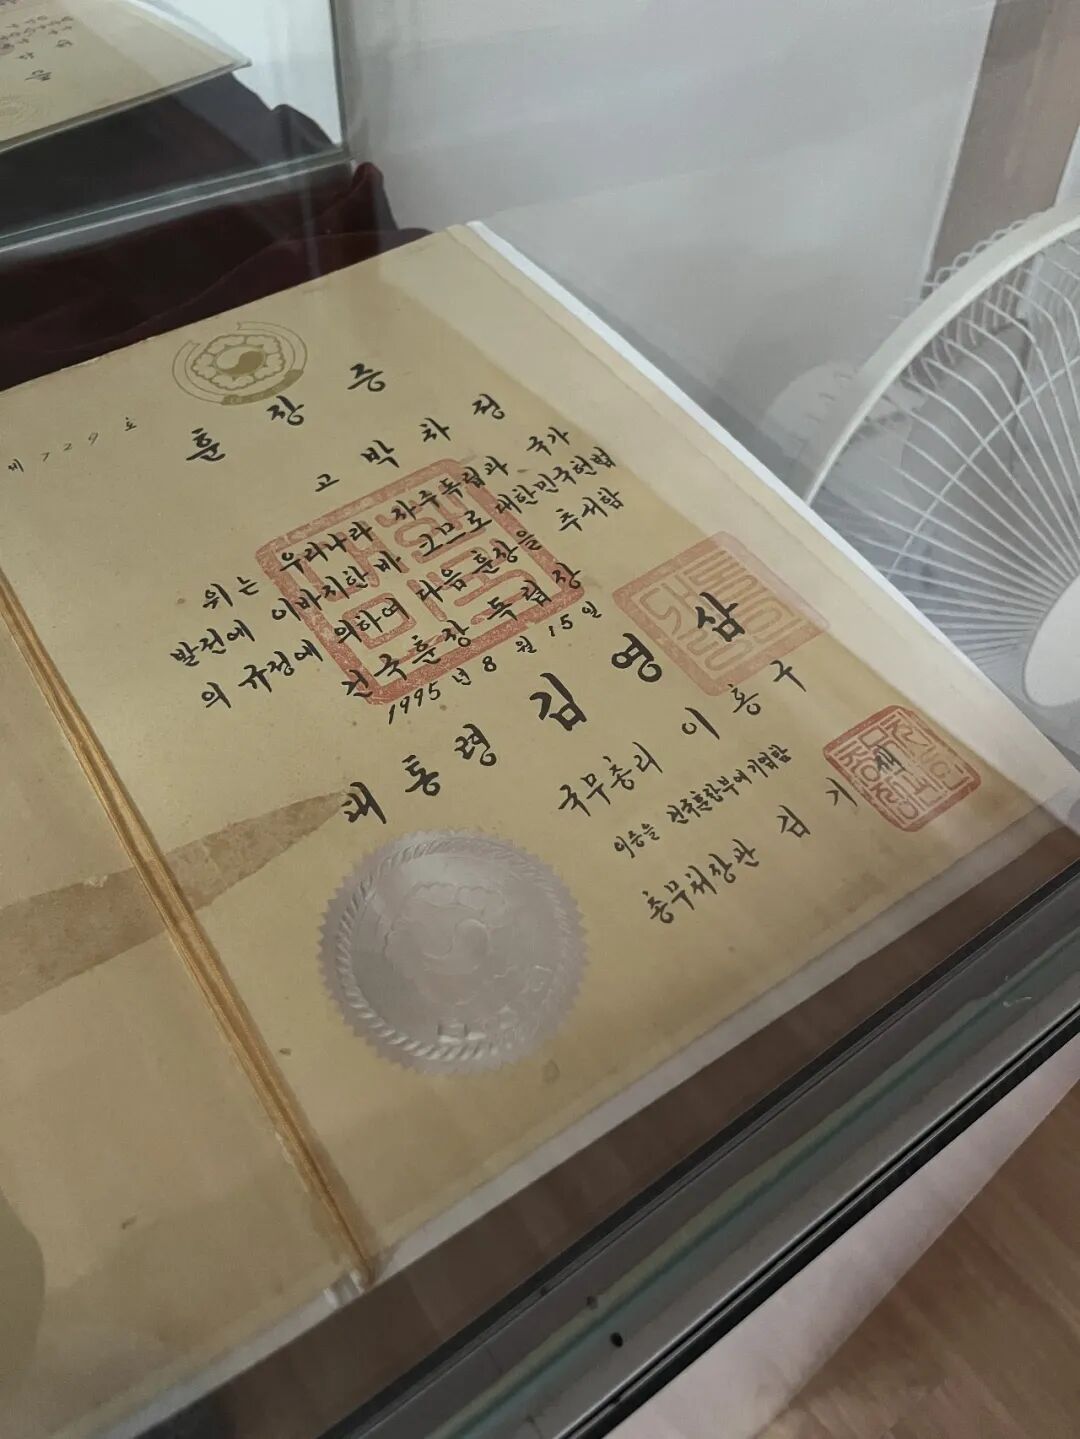 제 729 호
훈 장 증
고 박 차 정
위는 우리나라 자주독립과 국가
발전에 이바지한바 크므로 대한민국헌법
의 규정에 의하여 다음 훈장을 추서함
건국훈장 독립장
1995년 8월 15일
대통령 김영삼
국무총리 이홍구
이증을 건국훈장부에 기입함
총무처장관 김기재